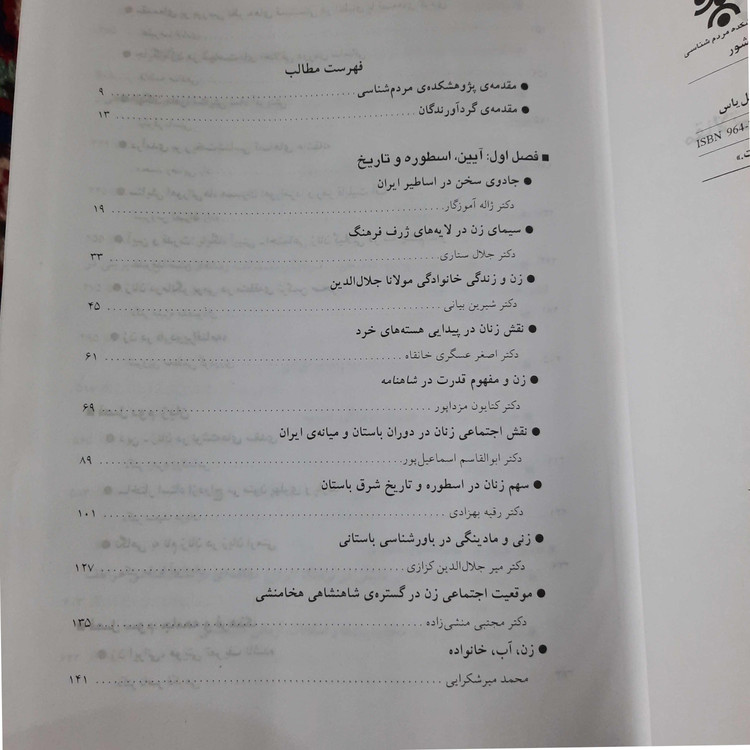 فهرست مطالب
● مقدمه‌ی پژوهشکده‌ی مردم‌شناسی ........ ۹
● مقدمه‌ی گردآورندگان ........ ۱۳
■ فصل اول: آیین، اسطوره و تاریخ
● جادوی سخن در اساطیر ایران
دکتر ژاله آموزگار ........ ۱۹
● سیمای زن در لایه‌های ژرف فرهنگ
دکتر جلال ستاری ........ ۳۳
● زن و زندگی خانوادگی مولانا جلال‌الدین
دکتر شیرین بیانی ........ ۴۵
● نقش زنان در پیدایی هسته‌های خرد
دکتر اصغر عسگری خانقاه ........ ۶۱
● زن و مفهوم قدرت در شاهنامه
دکتر کتایون مزداپور ........ ۶۹
● نقش اجتماعی زنان در دوران باستان و میانه‌ی ایران
دکتر ابوالقاسم اسماعیل‌پور ........ ۸۹
● سهم زنان در اسطوره و تاریخ شرق باستان
دکتر رقیه بهزادی ........ ۱۰۱
● زنی و مادینگی در باورشناسی باستانی
دکتر میر جلال‌الدین کزازی ........ ۱۲۷
● موقعیت اجتماعی زن در گستره‌ی شاهنشاهی هخامنشی
دکتر مجتبی منشی‌زاده ........ ۱۳۵
● زن، آب، خانواده
محمد میرشکرایی ........ ۱۴۱
مردم شناسی
شور
ل‌یاس
ISBN 964-